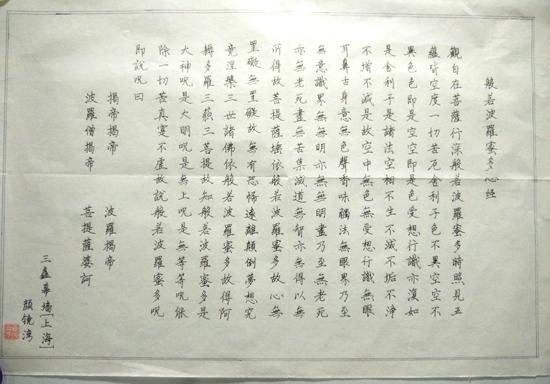 般若波羅蜜多心經
觀自在菩薩行深般若波羅蜜多時照見五
蘊皆空度一切苦厄舍利子色不異空空不
異色色即是空空即是色受想行識亦復如
是舍利子是諸法空相不生不滅不垢不淨
不增不減是故空中無色無受想行識無眼
耳鼻舌身意無色聲香味觸法無眼界乃至
無意識界無無明亦無無明盡乃至無老死
亦無老死盡無苦集滅道無智亦無得以無
所得故菩提薩埵依般若波羅蜜多故心無
罣礙無罣礙故無有恐怖遠離顛倒夢想究
竟涅槃三世諸佛依般若波羅蜜多故得阿
耨多羅三藐三菩提故知般若波羅蜜多是
大神呪是大明呪是無上呪是無等等呪能
除一切苦真實不虛故說般若波羅蜜多呪
即說呪曰
揭帝揭帝 波羅揭帝
波羅僧揭帝 菩提薩婆訶
三鑫幕墙[上海]